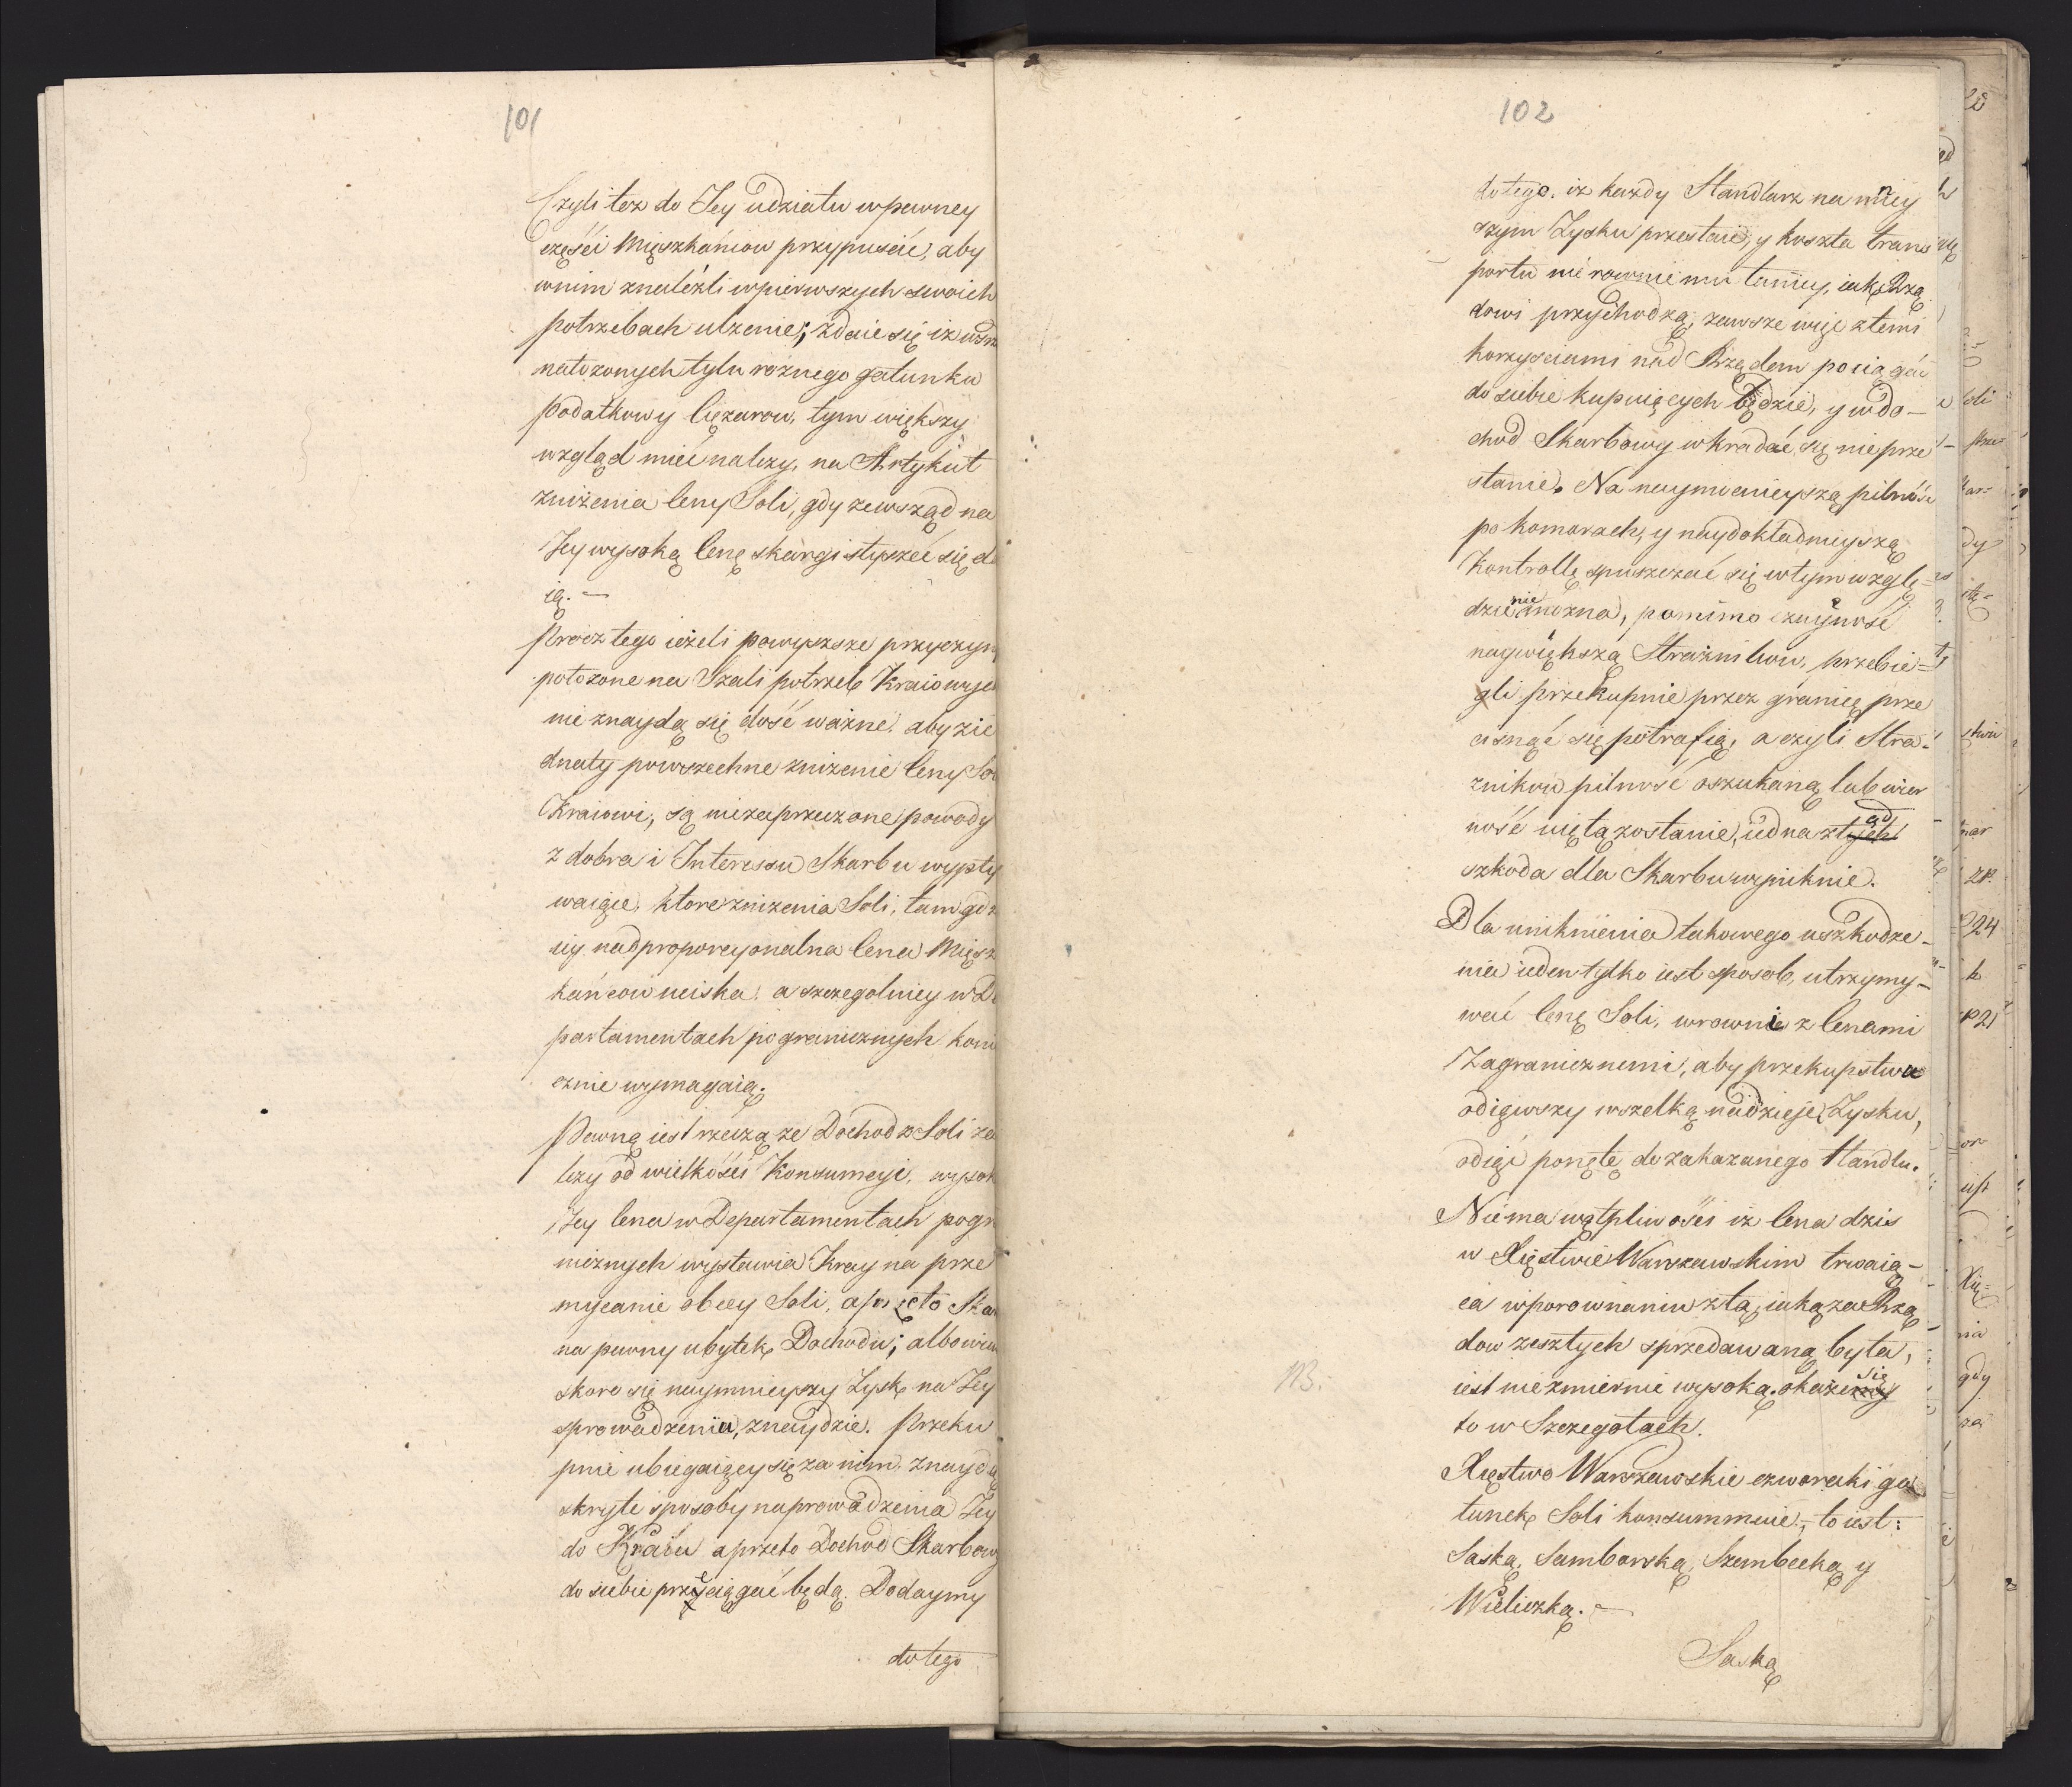 101
Czyli tez do Jey udziału wpewney
części Mięszkańcow przypuścić, aby
wnim znaleźli wpierwszych swoich
potrzebach ulzenie; zdaie się iz wśrz
nałozonych tylu roznego gatunku
podatkowy ciężarow, tym większy
wzgląd mieć nalezy, na Artykuł
zniżenia Ceny Soli, gdy zewsząd na
Jey wysoką Cenę skargi słyszeć się da
ią. —
Procz tego ieżeli powyższe przyczyn
położone na Szali potrzeb Kraiowych
nie znaydą się dość ważne, aby zie
dnały powszechne zniżenie Ceny Sol
Kraiowi, są niezaprzeczone powody
z dobra i Interessu Skarbu wypły
waiące, ktore zniżenia Soli, tam gdz
iey nadproporcyonalna Cena Miesz
kańcow uciska, a szczegolniey w De
partamentach pogranicznych koni
cznie wymagaią.
Pewną iest rzeczą ze Dochod z Soli za
lezy od wielkości Konsumcyi, wysok
Jey Cena w Departamentach pogr
nicznych wystawia Kray na prze
mycanie obcey Soli, a przeto Skar
na pewny ubytek Dochodu; albowiem
skoro się naymnieyszy Zysk na Jey
sprowadzeniu, znaydzie. Przeku
pnie ubiegaiący się za nim, znaydą
skryte sposoby naprowadzenia Jey
do Kraiu a przeto Dochod Skarbowy
do siebie przeciągać będą. Dodaymy
do tego
102
do tego. iz kazdy Handlarz na mniey
szym Zysku przestaie, y koszta trans
portu nie rownie mu taniey, iak Rzą
dowi przychodzą; zawsze więc z temi
korzysciami nad Rządem pociągać
do siebie kupuięcych będzie, y w do-
chod Skarbowy wkradać się nie prze
stanie. Na naymocnieyszą pilność
po Komorach, y naydokładnieyszą
Kontrollę spuszczać się w tym wzglę=
dzie nie można, pomimo czuyność
naywiększą Strażnikow, przebie=
gli przekupnie przez granicę prze
cisnąć się potrafią, a czyli Stra=
znikow pilność oszukaną lub wier
ność uiętą zostanie, iedna ztych ąd
szkoda dla Skarbu wyniknie.
Dla uniknienia takowego uszkodze-
nia ieden tylko iest sposob, utrzymy-
wać Cenę Soli, wrownie z Cenami
Zagranicznemi, aby przekupstwu
odiąwszy wszelką nadzieję Zysku,
odiąć ponętę do zakazanego Handlu.
Niema wątpliwości iz Cena dzis
w Xięstwie Warszawskim trwaią-
ca w porownaniu z tą, iaką za Rzą
dow zeszłych sprzedawaną była,
iest niezmiernie wysoką. okaże się
to w Szczegołach.
NB.
Xięstwo Warszawskie czworaki ga
tunek Soli konsummuie, to iest:
Saską, Samborską, Szembecką y
Wieliczką. —
Saską